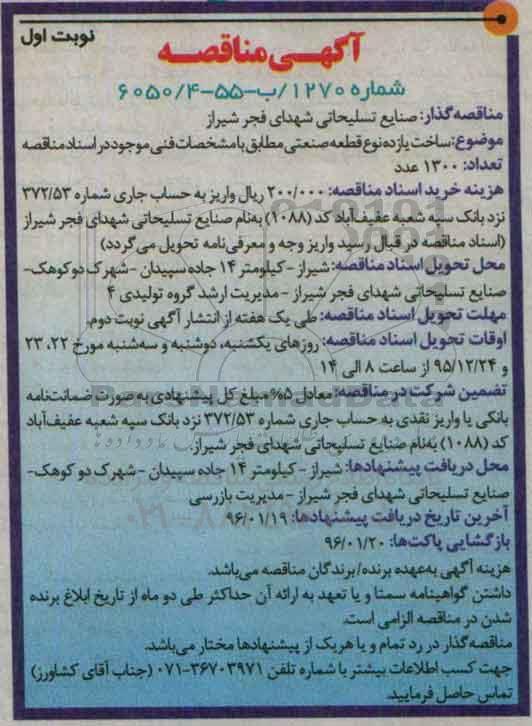 نوبت اول
آگهی مناقصه
شماره ۱۲۷۰/ب-۵۵-۶۰۵۰/۴
مناقصه‌گذار: صنایع تسلیحاتی شهدای فجر شیراز
موضوع: ساخت یازده نوع قطعه صنعتی مطابق با مشخصات فنی موجود در اسناد مناقصه
تعداد: ۱۳۰۰ عدد
هزینه خرید اسناد مناقصه: ۲۰۰/۰۰۰ ریال واریز به حساب جاری شماره ۳۷۲/۵۳
نزد بانک سپه شعبه عفیف‌آباد کد (۱۰۸۸) به‌نام صنایع تسلیحاتی شهدای فجر شیراز
(اسناد مناقصه در قبال رسید واریز وجه و معرفی‌نامه تحویل می‌گردد)
محل تحویل اسناد مناقصه: شیراز - کیلومتر ۱۴ جاده سپیدان - شهرک دوکوهک-
صنایع تسلیحاتی شهدای فجر شیراز - مدیریت ارشد گروه تولیدی ۴
مهلت تحویل اسناد مناقصه: طی یک هفته از انتشار آگهی نوبت دوم.
اوقات تحویل اسناد مناقصه: روزهای یکشنبه، دوشنبه و سه‌شنبه مورخ ۲۲، ۲۳
و ۹۵/۱۲/۲۴ از ساعت ۸ الی ۱۴
تضمین شرکت در مناقصه: معادل ۵% مبلغ کل پیشنهادی به صورت ضمانت‌نامه
بانکی یا واریز نقدی به حساب جاری شماره ۳۷۲/۵۳ نزد بانک سپه شعبه عفیف‌آباد
کد (۱۰۸۸) به‌نام صنایع تسلیحاتی شهدای فجر شیراز.
محل دریافت پیشنهادها: شیراز - کیلومتر ۱۴ جاده سپیدان - شهرک دو کوهک-
صنایع تسلیحاتی شهدای فجر شیراز - مدیریت بازرسی
آخرین تاریخ دریافت پیشنهادها: ۹۶/۰۱/۱۹
بازگشایی پاکت‌ها: ۹۶/۰۱/۲۰
هزینه آگهی به‌عهده برنده/برندگان مناقصه می‌باشد.
داشتن گواهینامه سمتا و یا تعهد به ارائه آن حداکثر طی دو ماه از تاریخ ابلاغ برنده
شدن در مناقصه الزامی است.
مناقصه‌گذار در رد تمام و یا هریک از پیشنهادها مختار می‌باشد.
جهت کسب اطلاعات بیشتر با شماره تلفن ۳۶۷۰۳۹۷۱-۰۷۱ (جناب آقای کشاورز)
تماس حاصل فرمایید.